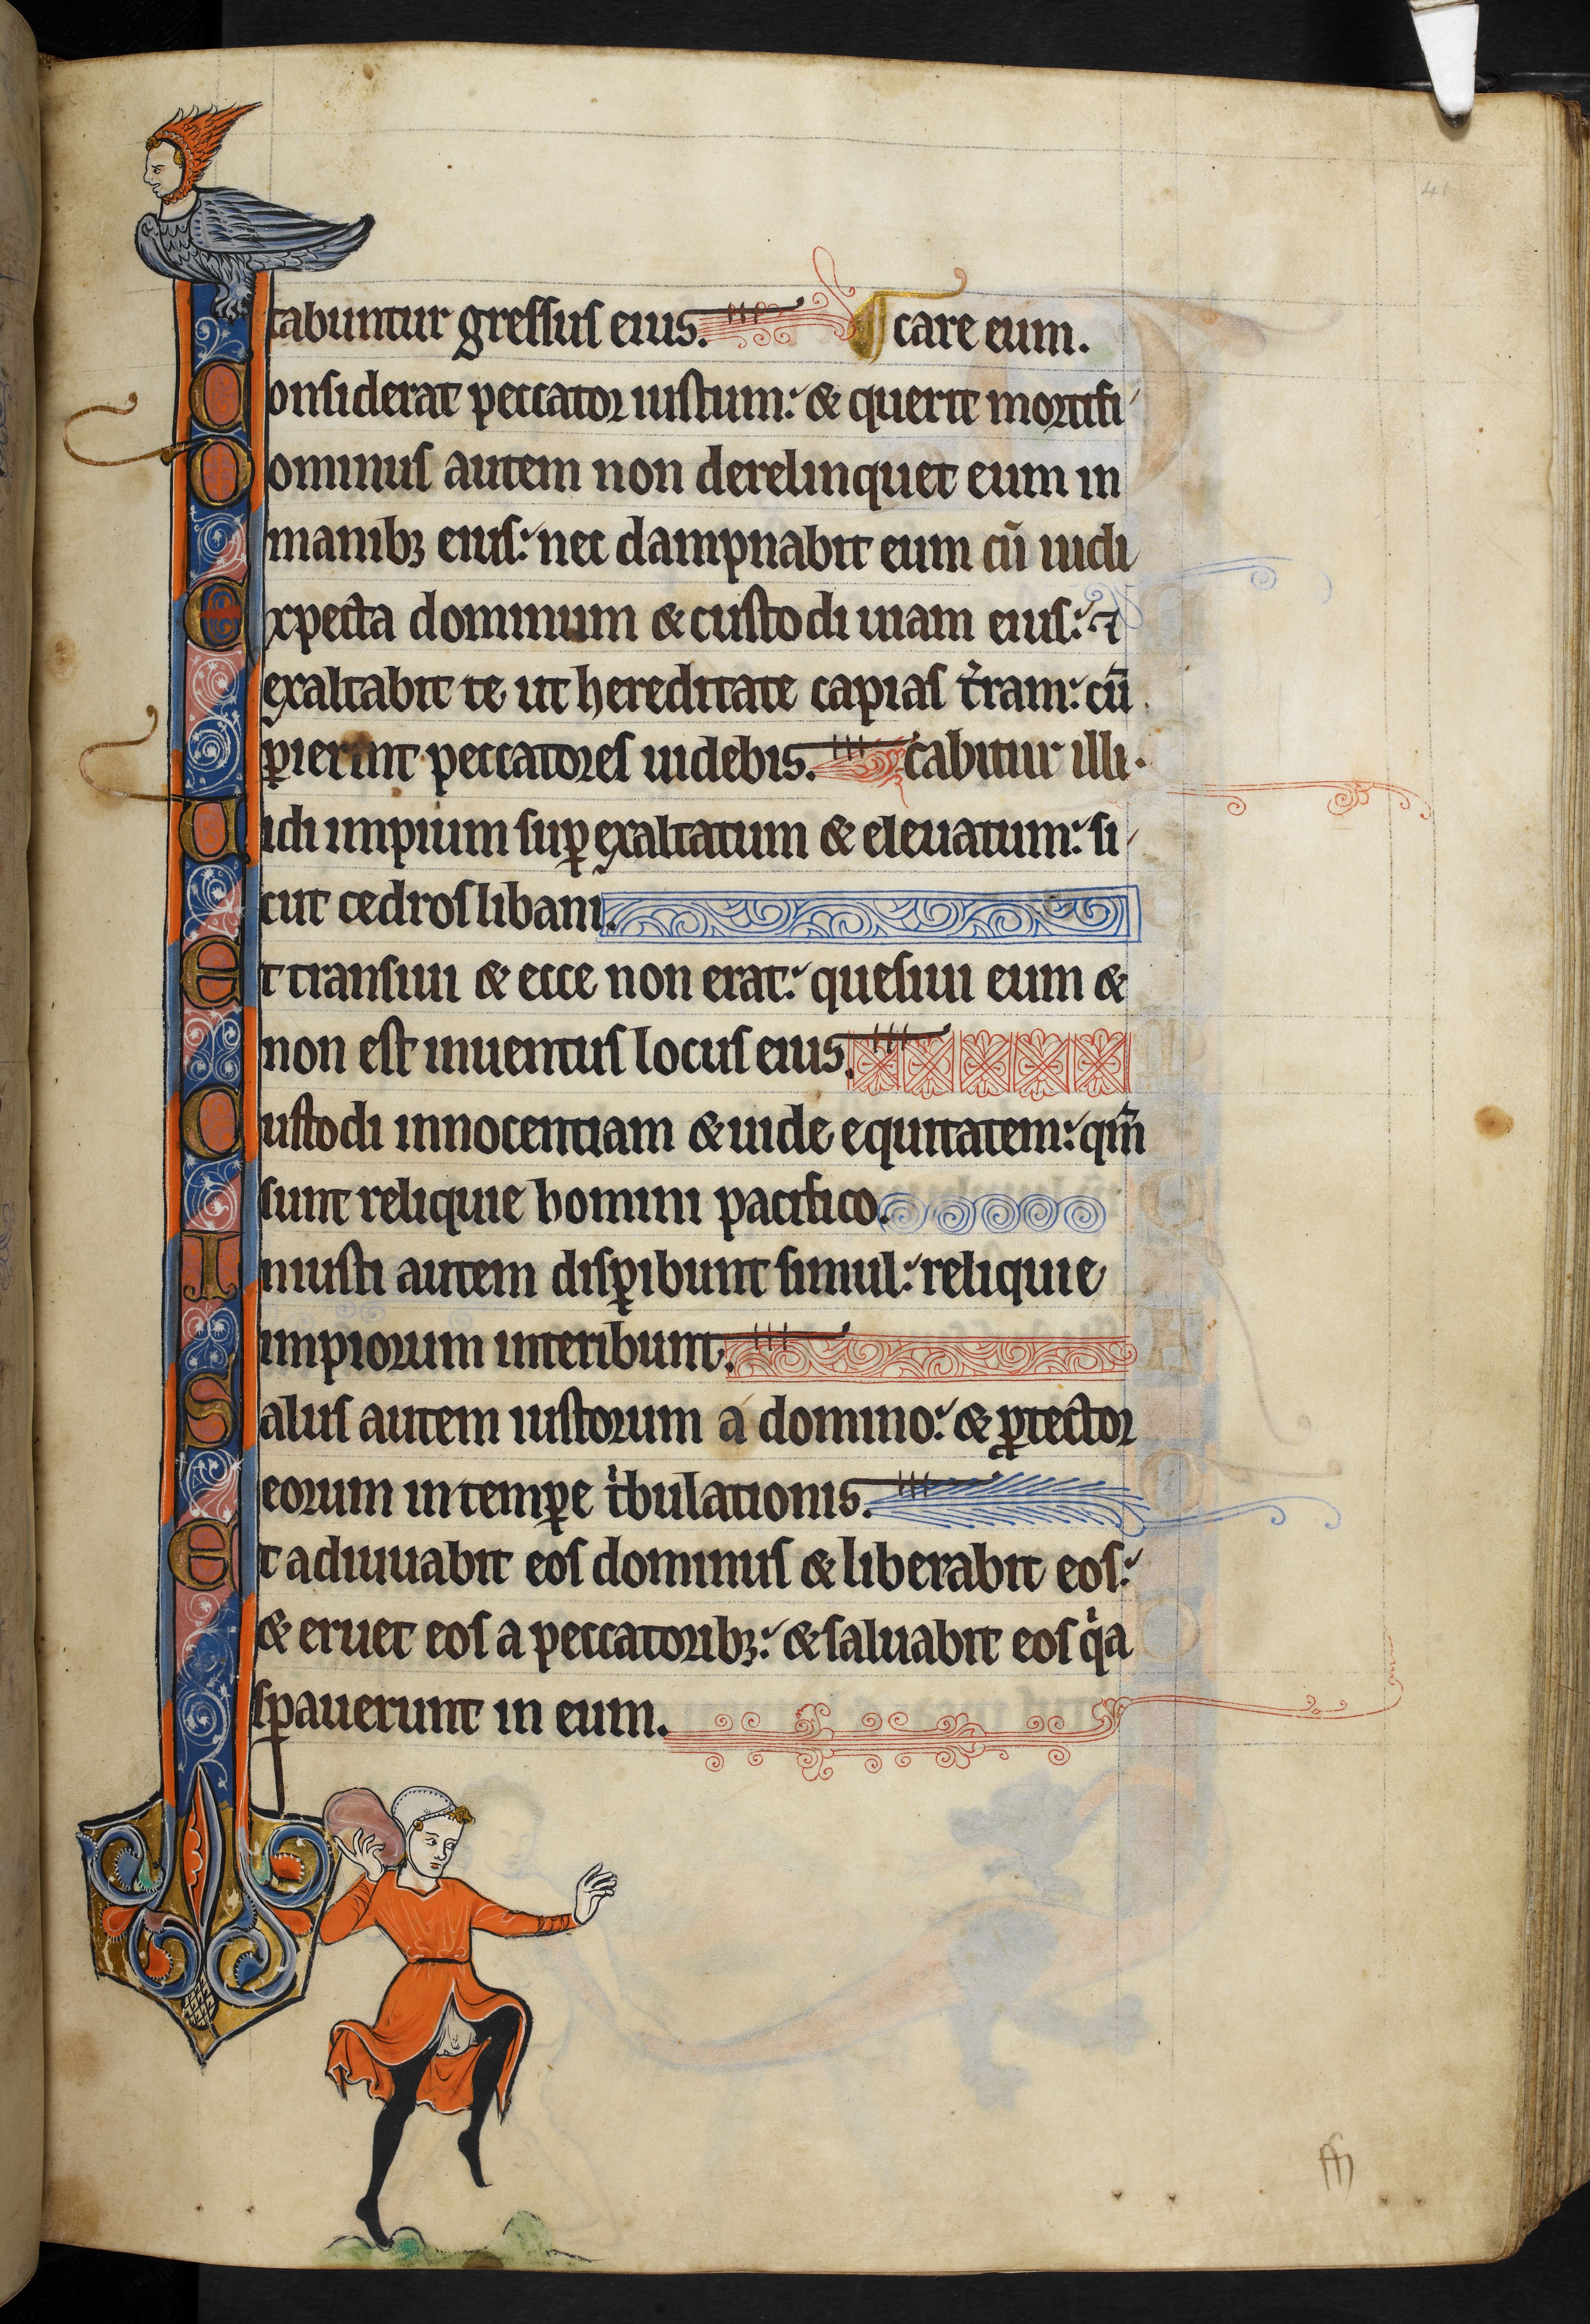 tabuntur gressus eius. care eum.
Considerat peccator iustum: & querit mortifi
Dominus autem non derelinquet eum in
manibꝫ eius: nec dampnabit eum cū iudi
Expecta dominum & custodi uiam eius: ⁊
exaltabit te ut hereditate capias t̾ram: cū
ꝑierint peccatores uidebis. cabitur illi.
Uidi impium suꝑexaltatum & eleuatum: si
cut cedros libani.
Et transiui & ecce non erat: quesiui eum &
non est inuentus locus eius.
Custodi innocentiam & uide equitatem: qm̄
sunt reliquie homini pacifico.
Iniusti autem disꝑibunt simul: reliquie
impiorum interibunt.
Salus autem iustorum a domino: & ꝓtector
eorum in temꝑe tⁱbulationis.
Et adiuuabit eos dominus & liberabit eos:
& eruet eos a peccatoribꝫ: & saluabit eos qⁱa
sꝑauerunt in eum.
41